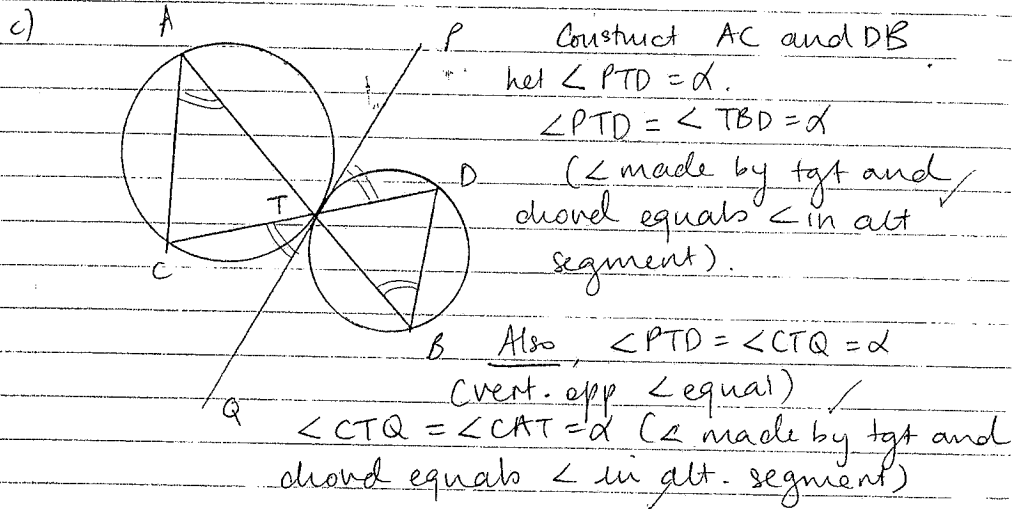 c)
A
P
Construct AC and DB
let ∠ PTD = α.
∠PTD = ∠ TBD = α
(∠ made by tgt and
chord equals ∠ in alt
segment).
D
T
C
B
Q
Also, ∠PTD = ∠CTQ = α
(vert. opp ∠ equal)
∠CTQ = ∠CAT = α (∠ made by tgt and
chord equals ∠ in alt. segment)